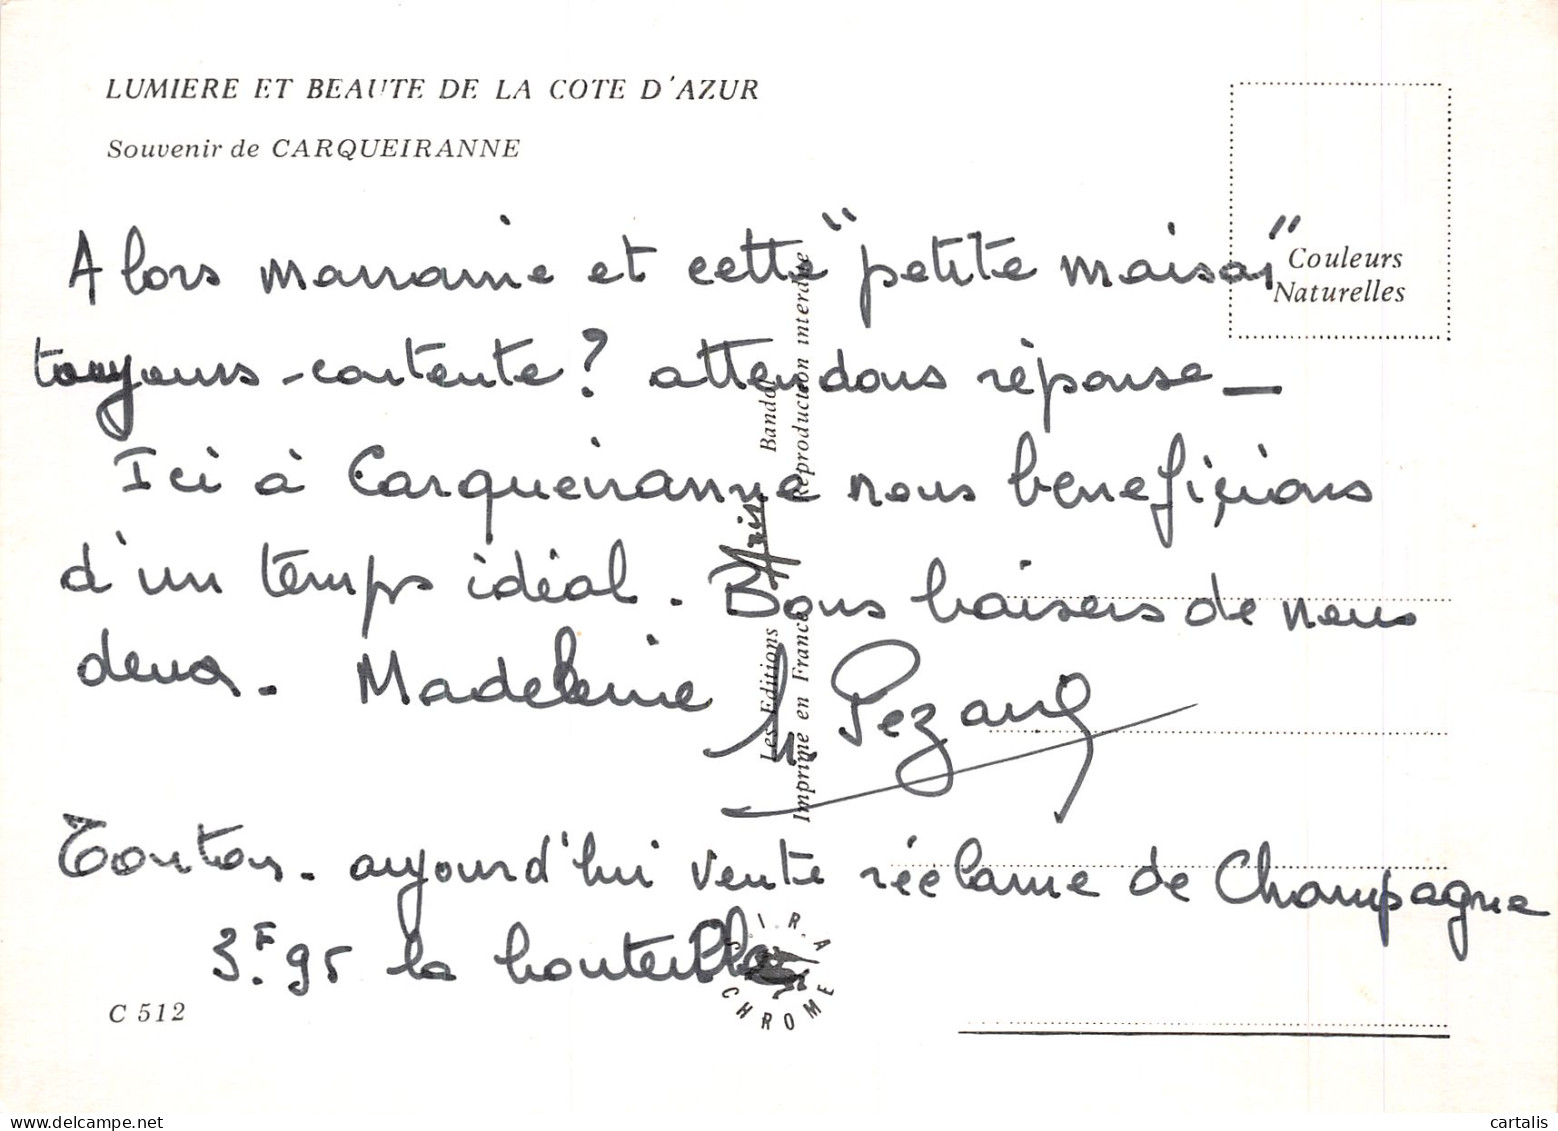 LUMIERE ET BEAUTE DE LA COTE D'AZUR
Souvenir de CARQUEIRANNE
Couleurs
Naturelles
Alors marraine et cette "petite maison"
toujours contente? attendons réponse —
Ici à Carqueiranne nous beneficions
d'un temps idéal. Bons baisers de nous
deux. Madeleine
Tonton - aujourd'hui vente réclame de Champagne
3.F 95 la bouteille
Les Editions Aris Bandol
Imprimé en France Reproduction interdite
C 512
CHROME
cartalis
www.delcampe.net